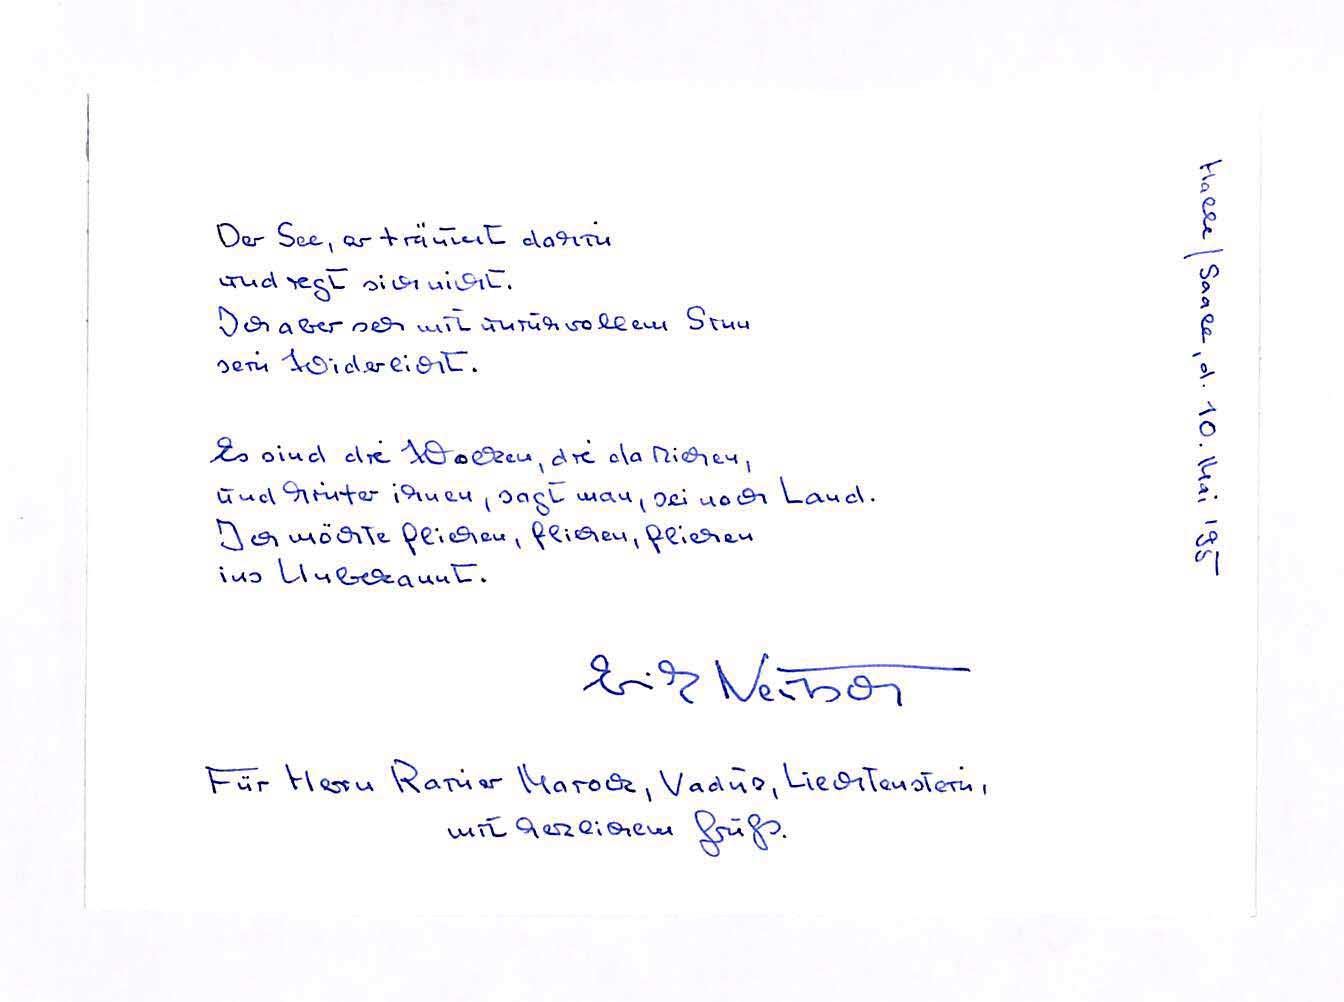 Der See, er träumt darin
und regt sich nicht.
Ich aber seh mit unruhvollem Sinn
sein Widerlicht.
Es sind die Wolken, die da ziehen,
und hinter ihnen, sagt man, sei noch Land.
Ich möchte fliehen, fliehen, fliehen
ins Unbekannt.
Erik Neutsch
Für Herrn Rainer Marock, Vaduz, Liechtenstein,
mit herzlichem Gruß.
Halle/Saale, d. 10. Mai '95